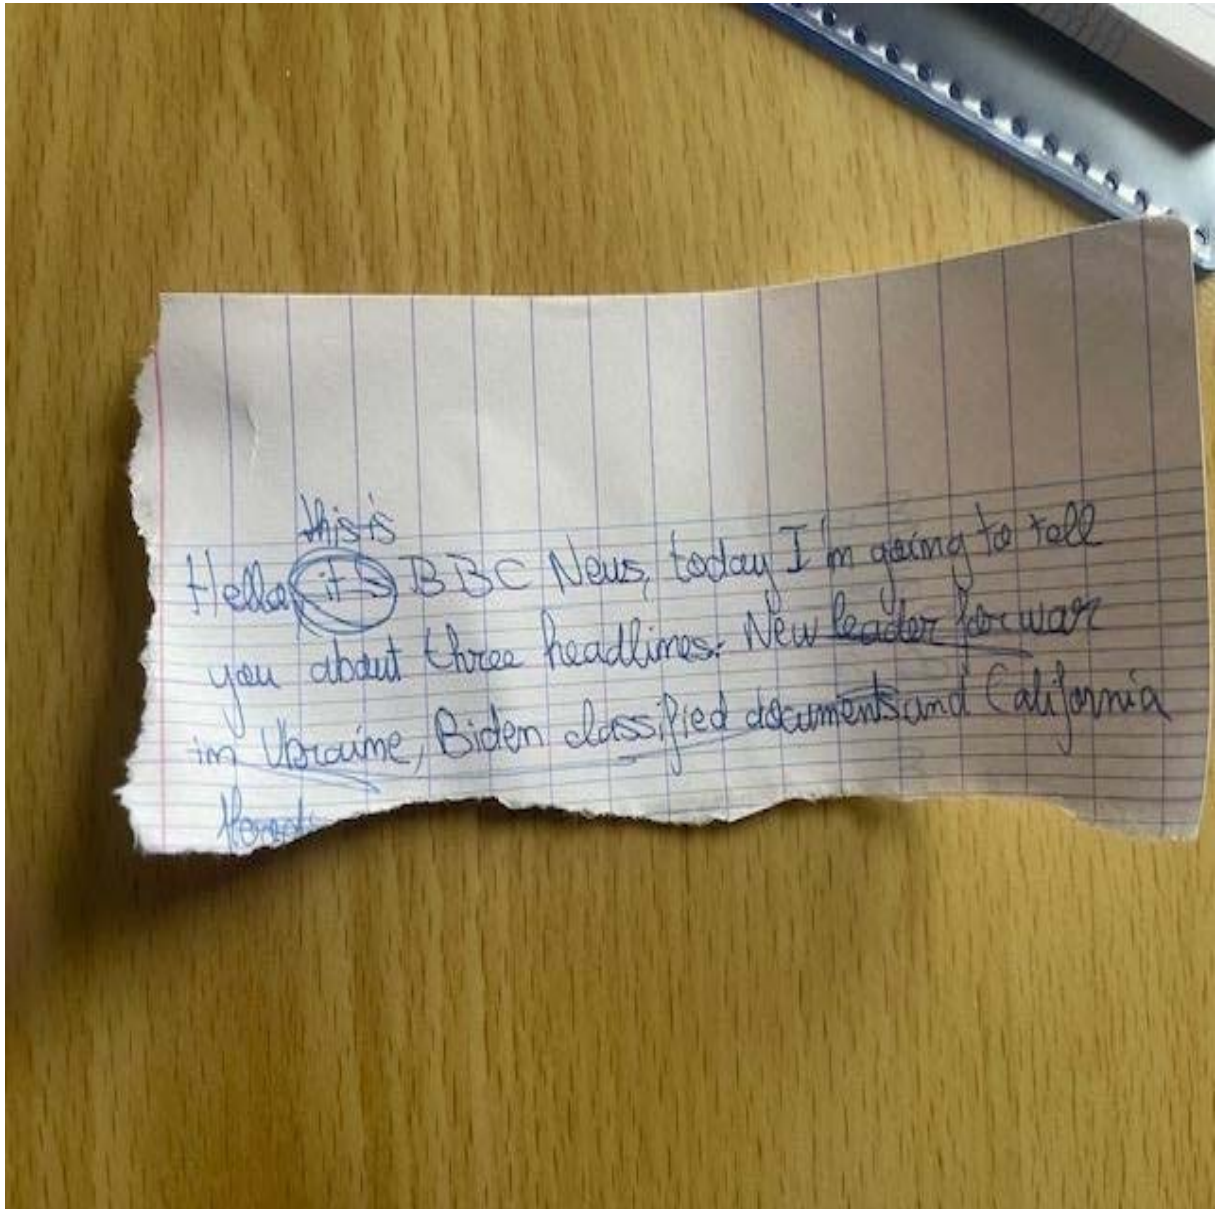 this is
Hello, it's BBC News, today I'm going to tell
you about three headlines: New leader for war
in Ukraine, Biden classified documents and California